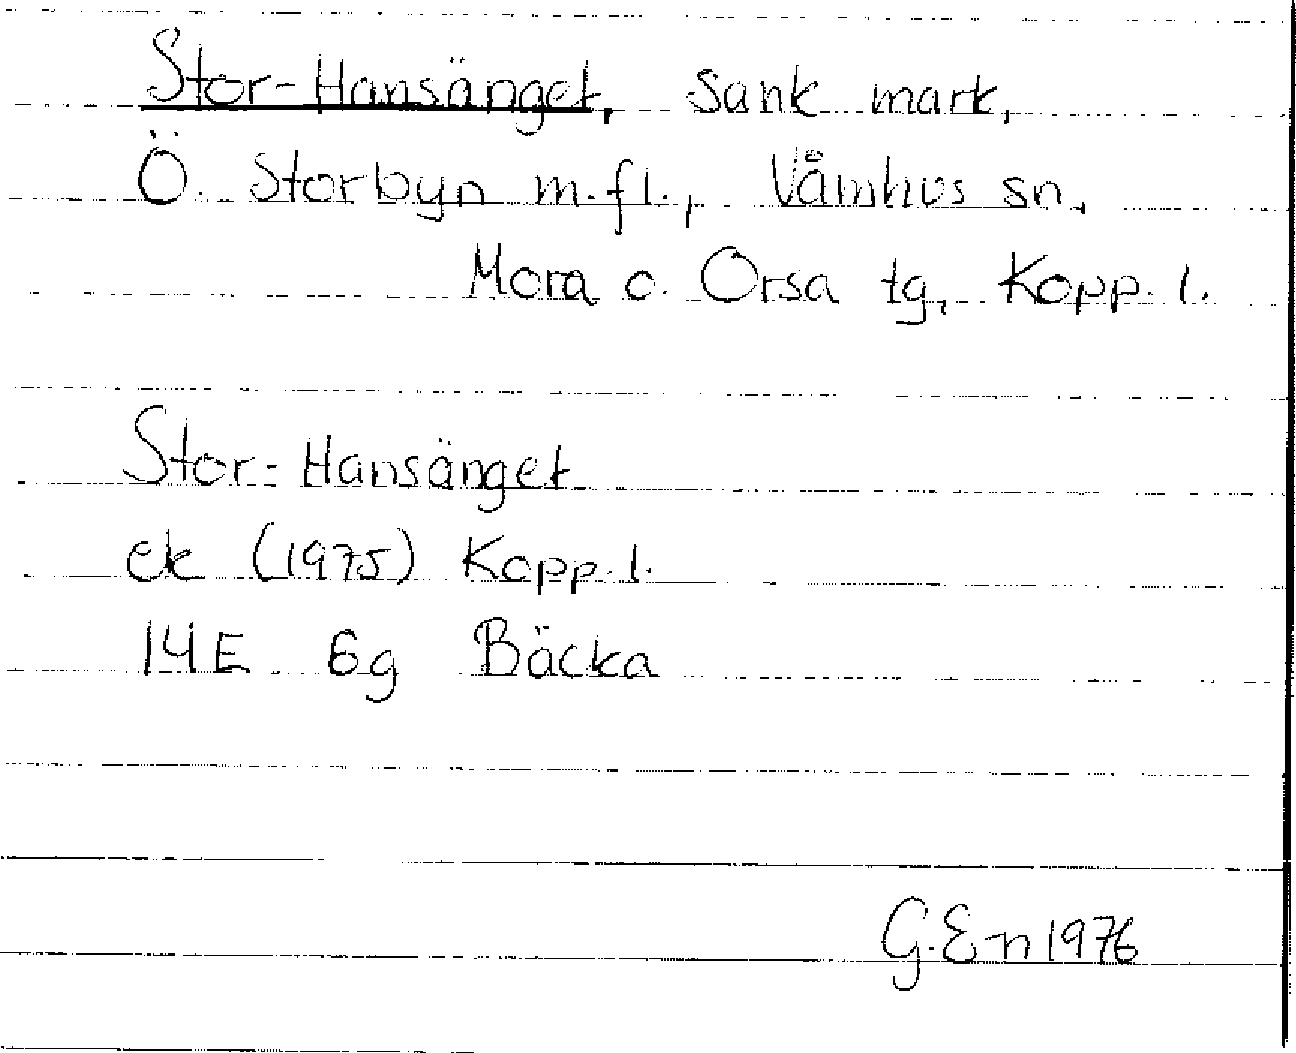 Stor-Hansänget, sank mark,
Ö. Storbyn m.fl., Våmhus sn,
Mora o. Orsa tg, Kopp. l.
Stor-Hansänget
ek (1975) Kopp. l.
14E 6g Bäcka
G.En 1976